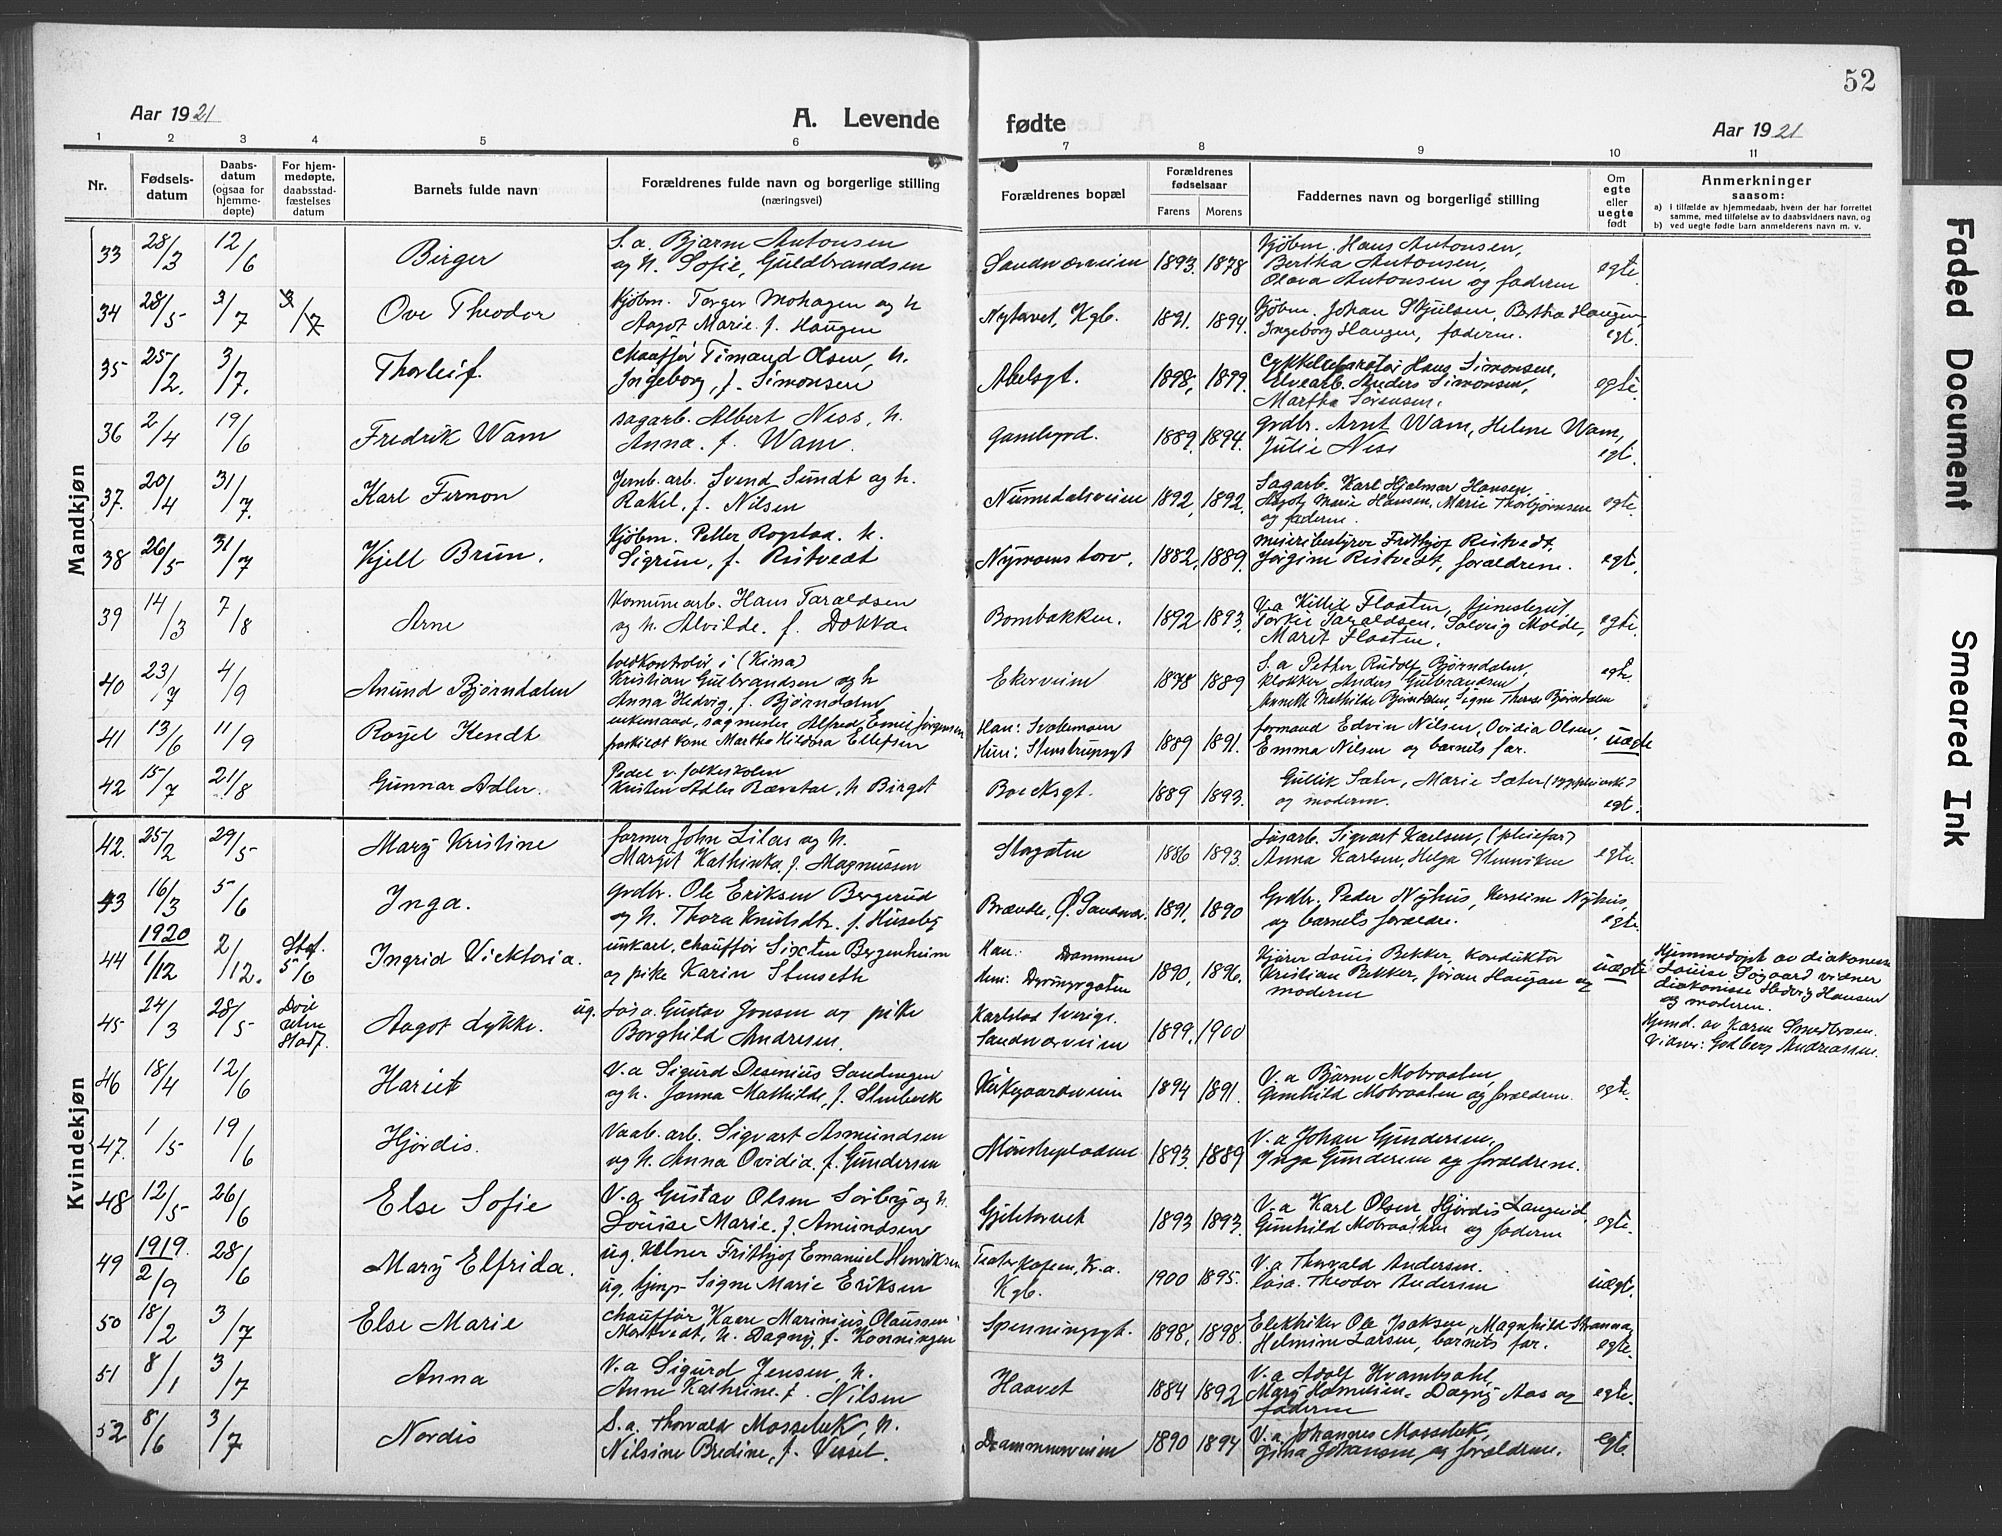 52
Aar 1921
A. Levende fødte
Aar 1921
1 2 3 4 5 6 7 8 9 10 11
Nr.
Fødsels-
datum
Daabs-
datum
(ogsaa for
hjemme-
døpte)
For hjem-
medøpte,
daabsstad-
fæstelses
datum
Barnets fulde navn
Forældrenes fulde navn og borgerlige stilling
(næringsvei)
Forældrenes bopæl
Forældrenes
fødselsaar
Farens. Morens.
Faddernes navn og borgerlige stilling
Om
egte
eller
uegte
født
Anmerkninger
saasom:
a) i tilfælde av hjemmedaab, hvem der har forrettet
samme, med tilføielse av to daabsvidners navn, og
b) ved uegte fødte barn anmelderens navn m. v.
Mandkjøn
33 28/3 12/6 Birger
S. a. Bjarne Antonsen
og h. Sofie, Guldbrandsen
Sandsværveien 1893. 1878
Kjøbm. Hans Antonsen,
Bertha Antonsen,
Olava Antonsen og faderen
egte.
34 28/5 3/7 3/7 Ove Theodor
Kjøbm. Torger Mohagen og h
Aagot Marie f. Haugen
Nytorvet, Kgb. 1891. 1894.
Kjøbm. Johan Skjulsen, Bertha Haugen,
Ingeborg Haugen, faderen.
egt.
35 25/2. 3/7. Thorleif.
Chauffør Timand Olsen, h.
Ingeborg, f. Simonsen
Abelsgt. 1898, 1899.
Cykkelreparatør Hans Simonsen,
Elvearb. Anders Simonsen,
Martha Sørensen.
egte
36 2/4 19/6 Fredrik Wam
sagarb. Albert Ness, h.
Anna. f. Wam.
Gamlegrd. 1889. 1894.
Grdbr. Arnt Wam, Helene Wam,
Julie Ness
egt.
37. 20/4 31/7. Karl Fernon
Jernb. arb. Svend Sundt og h.
Rakel, f. Nilsen
Numedalsveien 1892, 1892.
Sagarb. Karl Hjalmar Hansen,
Aagot Marie Hansen, Marie Thorbjørnsen
og faderen.
egte.
38 26/5 31/7 Kjell Brun.
Kjøbm. Petter Rogstad h.
Sigrun, f. Ristvedt
Nymoens torv. 1882, 1889.
Meieribestyrer Frithjof Ristvedt,
Jørgine Ristvedt, forældrene.
egt.
39 14/3 7/8 Arne
Komunearb. Hans Taraldsen
og h. Alvilde. f. Dokka.
Bombakken. 1892 1893.
V.a Kittil Flaaten, tjenestegut,
Torkil Taraldsen, Solveig Molde,
Marit Flaaten.
egte.
40 23/7 4/9 Anund Bjørndalen
toldkontrolør i (Kina)
Kristian Gulbrandsen og h
Anna Hedvig, f. Bjørndalen
Ekerveien 1878 1889
S. a Petter Rudolf Bjørndalen,
klokker Anders Gulbrandsen,
Annette Mathilde Bjørndalen, Signe Therese Bjørndalen
egte.
41 13/6 11/9 Roald Kendt
enkemand, sagmester Alfred Emil Jørgensen
fraskildt kone Martha Hildora Ellefsen
Han: Svolemoen
Hun: Stenstrupsgt
1889 1891.
formand Edvin Nilsen, Ovidia Olsen,
Emma Nilsen og barnets far.
uegte
42 15/7 21/8 Gunnar Adler.
Pedel v. folkeskolen
Kristen Adler Bævetal, h Birgit
Boeksgt. 1889 1893.
Gullik Sæter, Marie Sæter
og moderen.
egt.
Kvindekjøn
42. 25/2 29/5 Mary Kristine
farmer John Lilaas og h.
Margit Kathinka, f. Magnussen
Storgaten 1886 1893.
Løsarb. Sigvart Karlsen, (pleiefar)
Anna Karlsen, Helga Stenviken
egte.
43 16/3 5/6 Inga.
Grdbr. Ole Eriksen Bergerud
og h. Thora Knutsdtr. f. Huseby
Brænde, Ø. Sandsv. 1891, 1890
Grdbr. Peder Nyhus, Kerstine Nyhus,
og barnets forældre.
egte.
44 1920 1/12 2/12. Staf. 5/6 Ingrid Vicktoria.
ungkarl, chauffør Sixten Bergenheim
og pike Karin Stenseth
Han: Drammen
Hun: Dyrmyrgaten
1890, 1896.
Kjører Louis Bekker, konduktør
Kristian Bekker, Joran Haugan og
moderen
uegte
Hjemmedøpt av diakonisse
Louise Søgaard vidner
diakonisse Hedvig Hansen
og moderen.
45 24/3 28/5 Død uten staf. Aagot Lykke.
ug. Løsa. Gustav Jonsen og pike
Borghild Andresen.
Karlstad Sverige.
Sandsværveien
1899, 1900
Hjemd. av Karen Smedbraaten.
Vidner: Godberg Andreassen.
46 18/4 12/6 Hariet
V.a Sigurd Desinius Sandengen
og h. Janna Mathilde, f. Stenbæck
Kirkegaardsveien 1894 1891.
V. a Bjarne Mobraaten,
Gunhild Mobraaten og forældrene.
egte.
47. 1/5 19/6 Hjørdis.
Vaab. arb. Sigvart Asmundsen
og h. Anna Ovidia. f. Gundersen
Mønstrepladsen 1893. 1889
V.a Johan Gundersen,
Inga Gundersen og forældrene.
48 12/5 26/6 Else Sofie
V.a Gustav Olsen Sørby og h.
Louise Marie. f. Amundsen
Gjeltetorvet 1893 1893.
V.a Karl Olsen, Hjørdis Langerud,
Gunhild Mobraaten og faderen
egte.
49 1919. 2/9 28/6 Mary Elfrida.
ug. Kelner Frithjof Emanuel Henriksen
ug. tjenp. Signe Marie Eriksen
Teaterkafeen, Kr.a.
Kgb.
1900 1895.
V.a Thorvald Andersen.
Løsa. Theodor Andersen
uegt.
50 18/2 3/7 Else Marie
Chauffør Kaare Marinius Olaussen
Mortvedt, h. Dagny, f. Konningen
Spenningsgt. 1898, 1898.
Elektriker Ole Isaksen, Magnhild Stranna,
Helmine Larsen, barnets far.
egte.
51 8/1 3/7 Anna
V.a Sigurd Jensen, h.
Anne Kathrine. f. Nilsen
Haavet 1884 1892
V.a Adolf Hvambsahl,
Mary Henriksen, Dagny Aas og
faderen
egte.
52 8/6 3/7 Nordis
S.a. Thorvald Mossebæk, h.
Nilsine Bredine, f. Vessel.
Drammensveien 1890 1894
V.a. Johannes Mossebæk,
Gina Johansen, og forældrene.
egte.
Faded Document
Smeared Ink